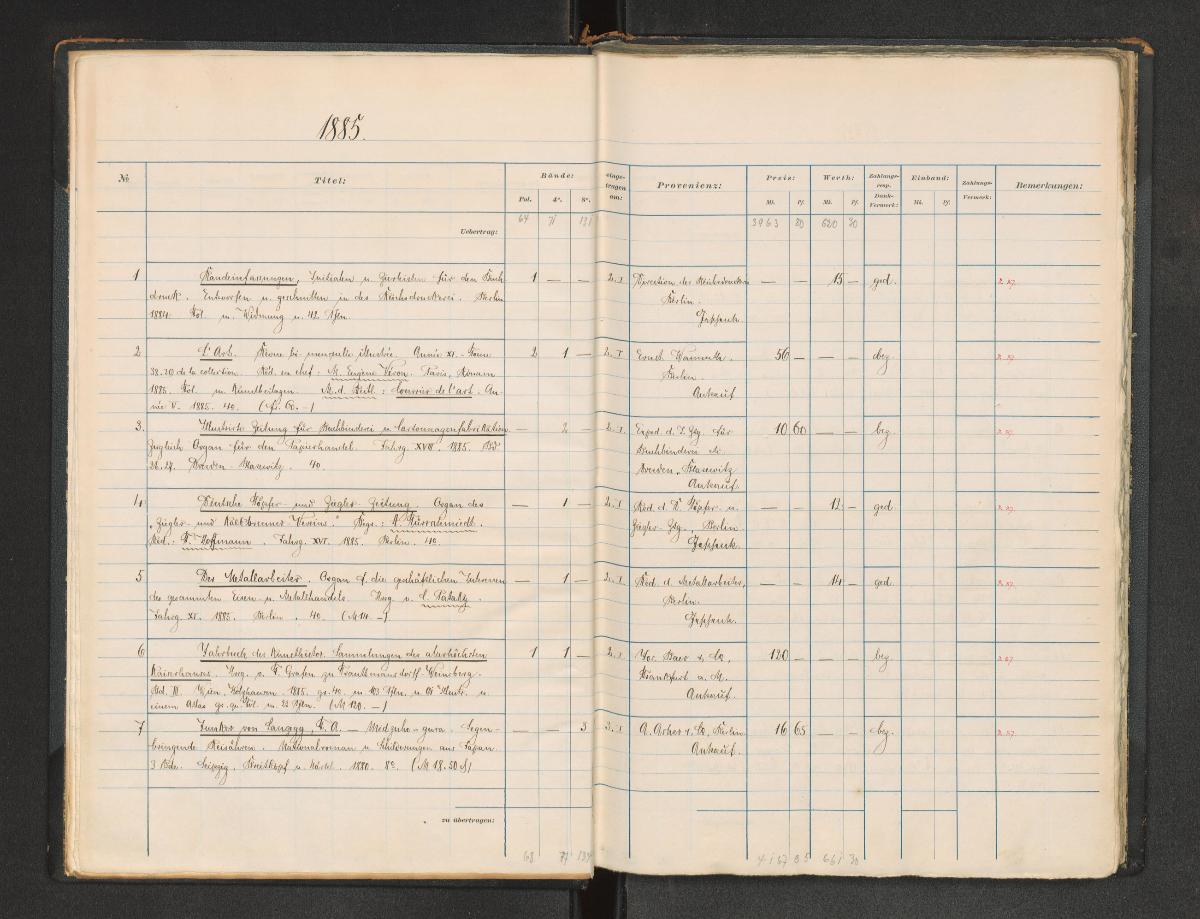 1885.
№ Titel: Bände: einge-tragen am: Provenienz: Preis: Werth: Zahlungs- resp. Dank-Vermerk: Einband: Zahlungs-Vermerk: Bemerkungen:
Fol. 4°. 8°. Mk. Pf. Mk. Pf. Mk. Pf.
Uebertrag: 64 71 131 3963 80 620 30
1 Randeinfassungen, Initialen u. Zierleisten für den Buch 1 — — 2. I Direction der Reichsdruckerei — — 15 — ged.
druck. Entworfen u. geschnitten in der Reichsdruckerei. Berlin Berlin.
1884. Fol. m. Widmung u. 42 Tfln. Geschenk.
2 L'Art. Revue bi-mensuelle illustrée. Année XI. Tome 2 1 — 2. I Ernst Wasmuth. 56 — — — bez.
38.39 de la collection. Réd. en chef: M. Eugène Véron. Paris, Rouam Berlin.
1885. Fol. m. Kunstbeilagen. M. d. Beibl.: Courrier de l'art. An- Ankauf
née V. 1885. 40. (fr. 60.—)
3. Illustrirte Zeitung für Buchbinderei u. Cartonnagenfabrikation — 2 — 2. I Exped. d. I. Ztg. für 10 60 — — bez.
Zugleich Organ für den Papierhandel. Jahrg. XVIII. 1885. Bd Buchbinderei etc.
Dresden-Blasewitz. 40. Dresden-Blasewitz
Ankauf.
4 Deutsche Töpfer- und Ziegler-Zeitung. Organ des — 1 — 2. I Red. d. D. Töpfer- u. — — 12 — ged.
„Ziegler- und Kalkbrenner Vereins." Begr.: A. Türrschmiedt. Ziegler-Ztg., Berlin.
Red.: F. Hoffmann. Jahrg. XVI. 1885. Berlin. 40. Geschenk.
5 Der Metallarbeiter. Organ f. die geschäftlichen Interessen — 1 — 2. I Red. d. Metallarbeiter, — — 14 — ged.
des gesammten Eisen- u. Metallhandels. Hrsg. v. C. Pataky. Berlin.
Jahrg. XI. 1885. Berlin. 40. (M 14.—) Geschenk.
6 Jahrbuch der Kunsthistor. Sammlungen des allerhöchsten 1 1 — 2. I Jos. Baer & Co, 120 — — — bez.
Kaiserhauses. Hrsg. v. F. Grafen zu Trauttmansdorff-Weinsberg. Frankfurt a. M.
Bd. III. Wien, Holzhausen. 1885. gr. 40. m. 103 Tfln. u. Illustr. u. Ankauf.
einem Atlas gr. qu. Fol. m. 22 Tfln. (M 120.—)
7 Junker von Langegg, F. A. — Midzuho-gusa. Segen- — — 3 2. I A. Asher & Co, Berlin. 16 65 — — bez.
bringende Reisähren. Nationalroman u. Schilderungen aus Japan. Ankauf.
3 Bde. Leipzig, Breitkopf u. Härtel. 1880. 8°. (M 18.50 δ)
zu übertragen:
68 77 134 4167 05 661 30